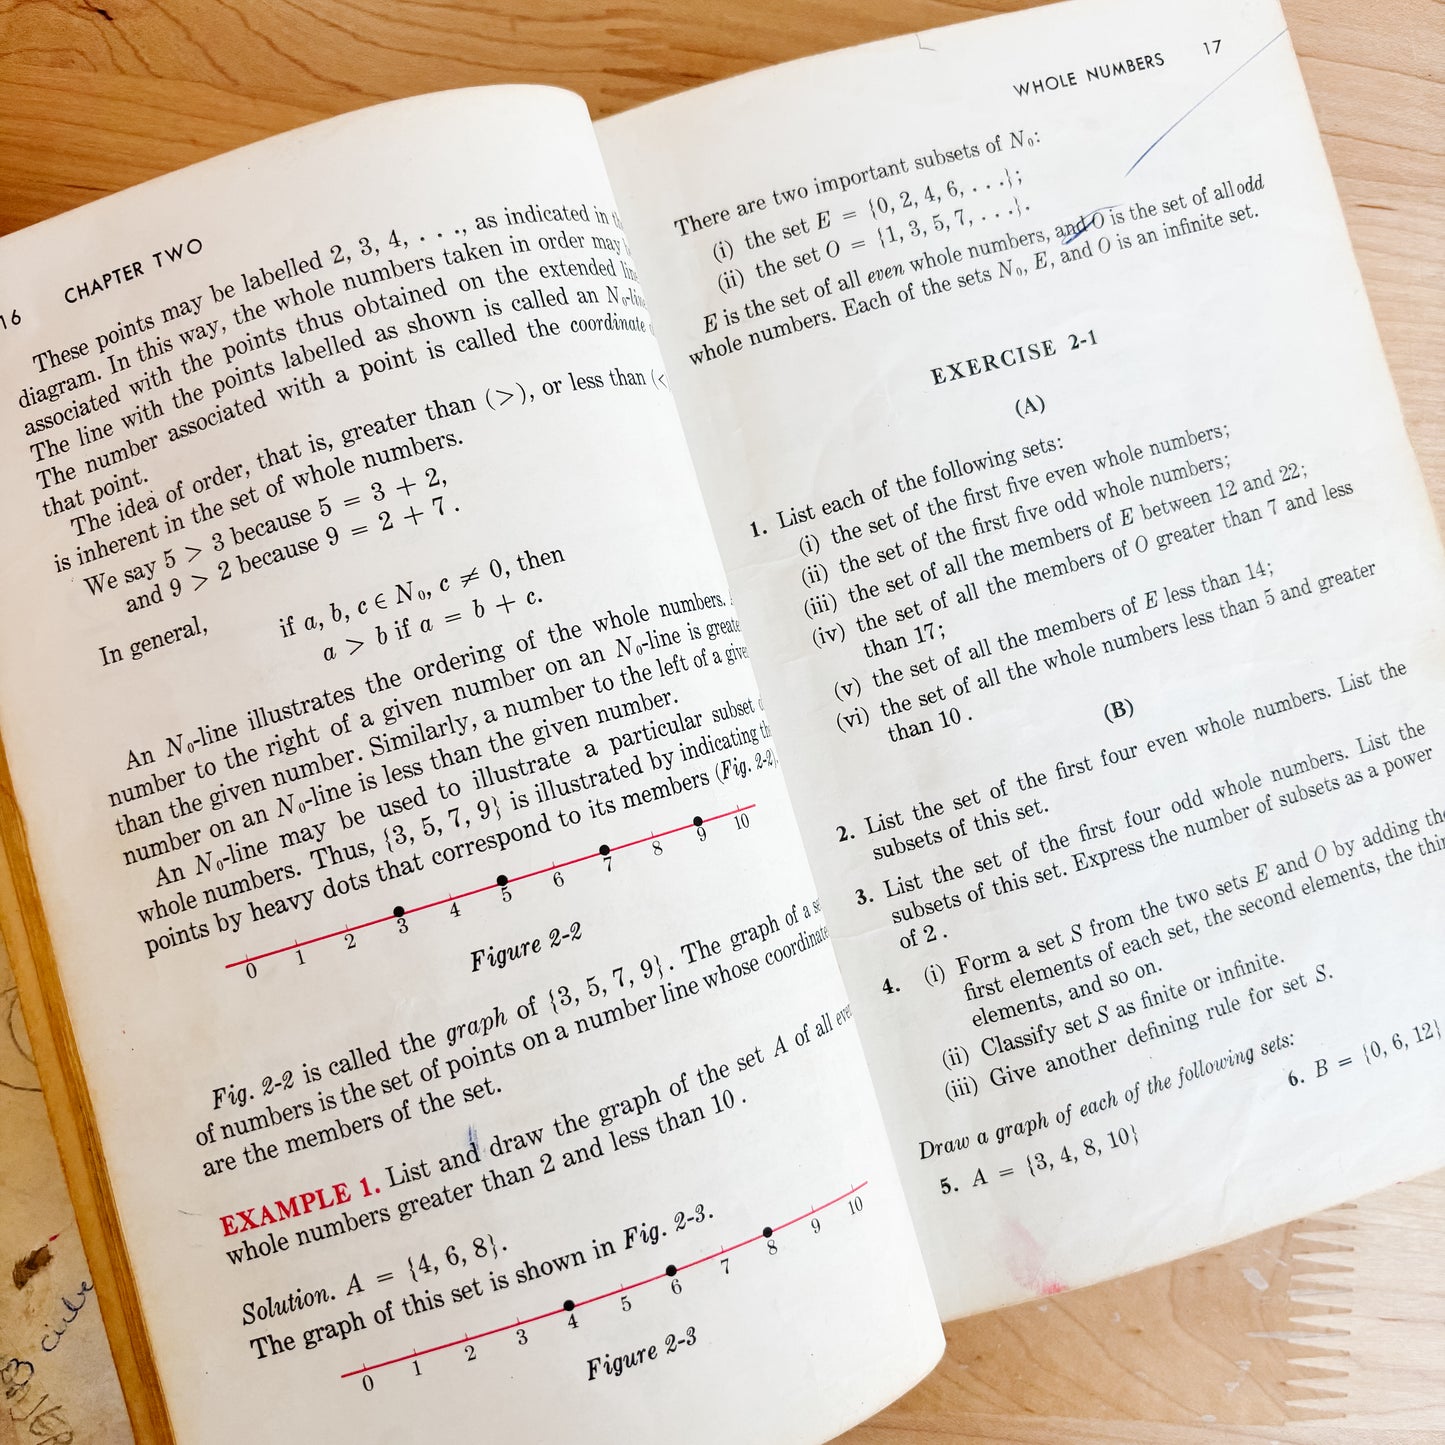 16 CHAPTER TWO
These points may be labelled 2, 3, 4, . . ., as indicated in
diagram. In this way, the whole numbers taken in order may
associated with the points thus obtained on the extended
The line with the points labelled as shown is called an N₀-line
The number associated with a point is called the coordinate
that point.
The idea of order, that is, greater than (>), or less than (<
is inherent in the set of whole numbers.
We say 5 > 3 because 5 = 3 + 2,
and 9 > 2 because 9 = 2 + 7.
In general, if a, b, c ∈ N₀, c ≠ 0, then
a > b if a = b + c.
An N₀-line illustrates the ordering of the whole numbers.
number to the right of a given number on an N₀-line is
than the given number. Similarly, a number to the left of a
number on an N₀-line is less than the given number.
An N₀-line may be used to illustrate a particular subset
whole numbers. Thus, {3, 5, 7, 9} is illustrated by indicating
points by heavy dots that correspond to its members (Fig. 2-2).
0 1 2 3 4 5 6 7 8 9 10
Figure 2-2
Fig. 2-2 is called the graph of {3, 5, 7, 9}. The graph of a
of numbers is the set of points on a number line whose coordinate
are the members of the set.
EXAMPLE 1. List and draw the graph of the set A of all
whole numbers greater than 2 and less than 10.
Solution. A = {4, 6, 8}.
The graph of this set is shown in Fig. 2-3.
0 1 2 3 4 5 6 7 8 9 10
Figure 2-3
WHOLE NUMBERS 17
There are two important subsets of N₀:
(i) the set E = {0, 2, 4, 6, . . .};
(ii) the set O = {1, 3, 5, 7, . . .}.
E is the set of all even whole numbers, and O is the set of all odd
whole numbers. Each of the sets N₀, E, and O is an infinite set.
EXERCISE 2-1
(A)
1. List each of the following sets:
(i) the set of the first five even whole numbers;
(ii) the set of the first five odd whole numbers;
(iii) the set of all the members of E between 12 and 22;
(iv) the set of all the members of O greater than 7 and less
than 17;
(v) the set of all the members of E less than 14;
(vi) the set of all the whole numbers less than 5 and greater
than 10.
(B)
2. List the set of the first four even whole numbers. List the
subsets of this set.
3. List the set of the first four odd whole numbers. List the
subsets of this set. Express the number of subsets as a power
of 2.
4. (i) Form a set S from the two sets E and O by adding the
first elements of each set, the second elements, the
elements, and so on.
(ii) Classify set S as finite or infinite.
(iii) Give another defining rule for set S.
Draw a graph of each of the following sets:
5. A = {3, 4, 8, 10} 6. B = {0, 6, 12}